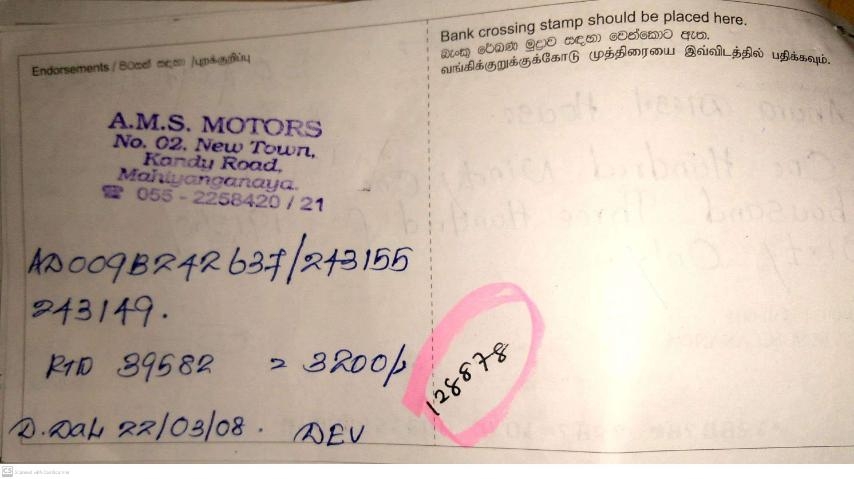 Bank crossing stamp should be placed here.
බැංකු රේඛණ මුද්‍රාව සඳහා වෙන්කොට ඇත.
வங்கிக்குறுக்குக்கோடு முத்திரையை இவ்விடத்தில் பதிக்கவும்.
Endorsements / පිටසන් සඳහා /புறக்குறிப்பு
A.M.S. MOTORS
No. 02. New Town,
Kandy Road,
Mahiyanganaya.
☎ 055 - 2258420 / 21
AD009B242637/243155
243149.
RTD 39582 = 3200/-
128878
D.Dat 22/03/08. DEV
CS Scanned with CamScanner